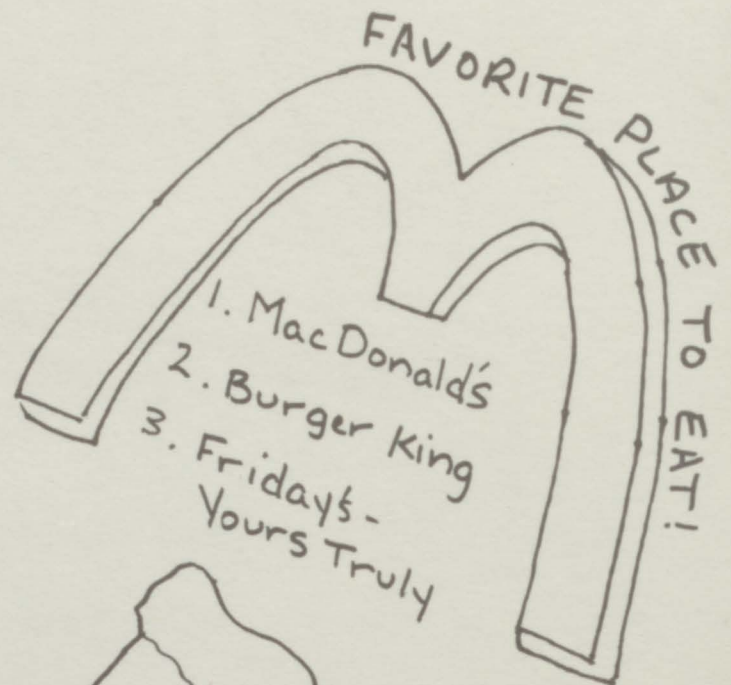 FAVORITE PLACE TO EAT!
1. MacDonald's
2. Burger King
3. Friday's -
Yours Truly